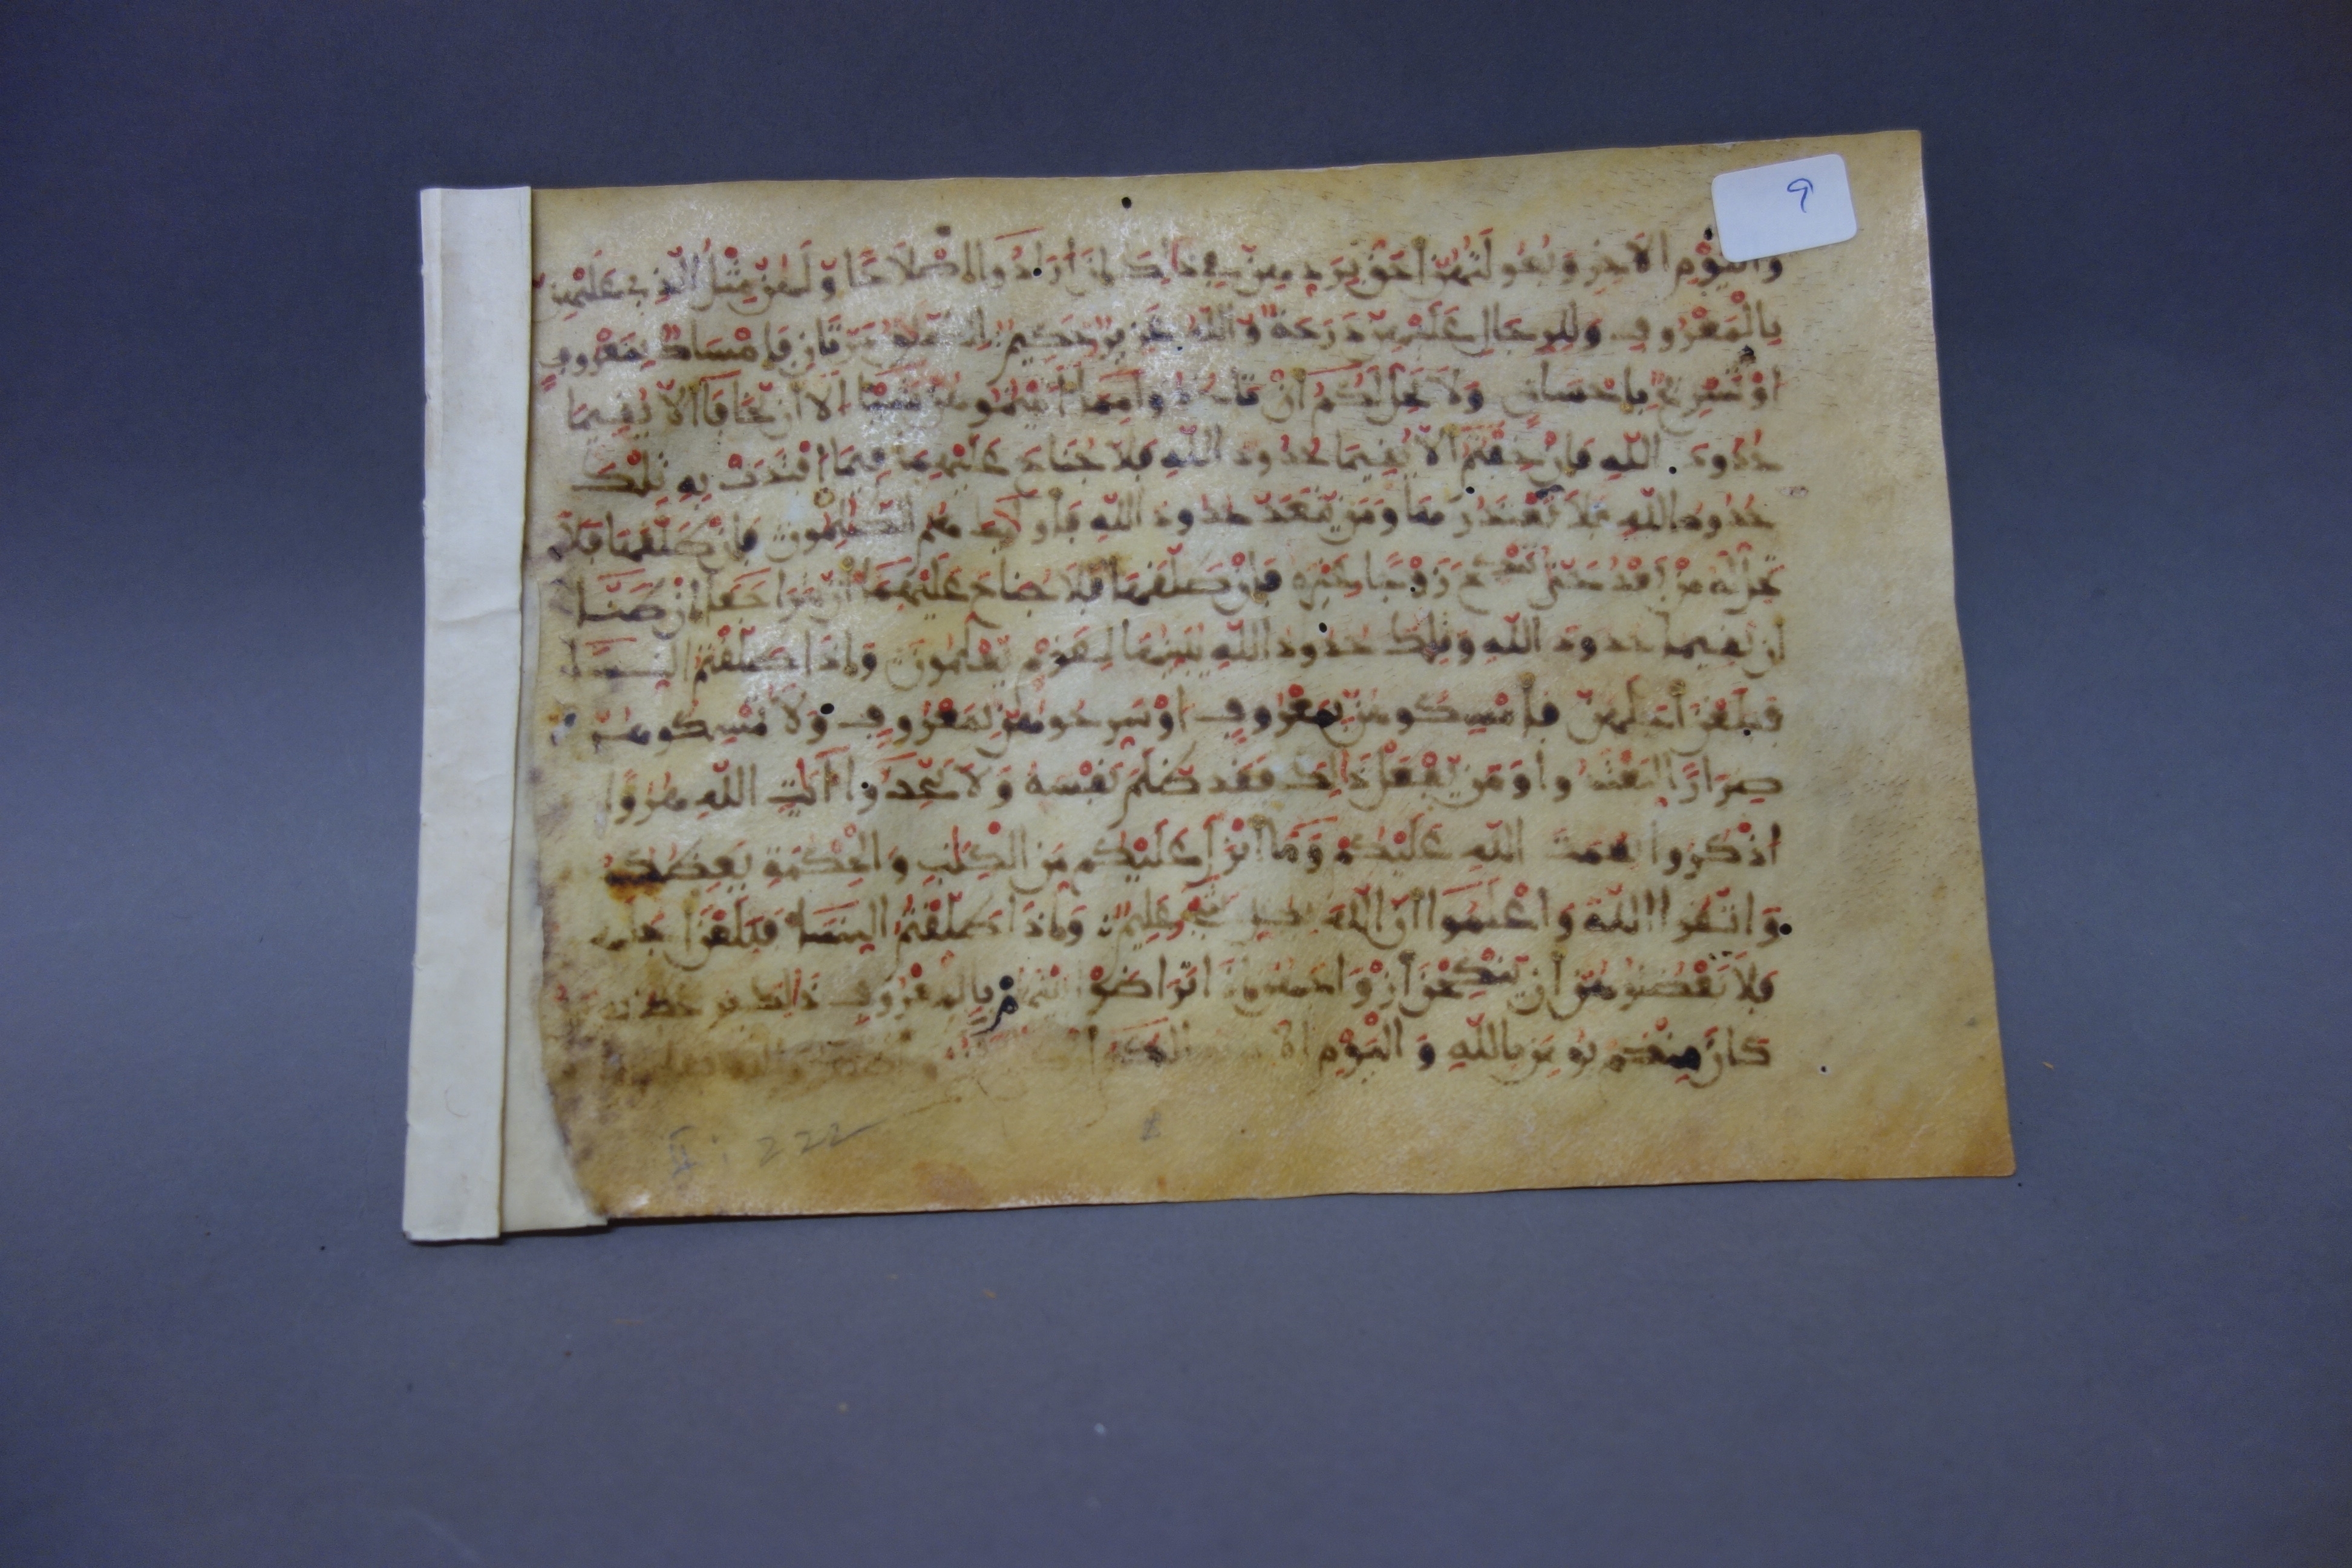 9
واليوم الاخر وبعولتهن احق بردهن في ذلك ان ارادوا اصلاحا ولهن مثل الذي عليهن
بالمعروف وللرجال عليهن درجة والله عزيز حكيم الطلاق مرتان فإمساك بمعروف
او تسريح باحسان ولا يحل لكم ان تاخذوا مما اتيتموهن شيئا الا ان يخافا الا يقيما
حدود الله فان خفتم الا يقيما حدود الله فلا جناح عليهما فيما افتدت به تلك
حدود الله فلا تعتدوها ومن يتعد حدود الله فأولئك هم الظلمون فان طلقها فلا
تحل له من بعد حتى تنكح زوجا غيره فان طلقها فلا جناح عليهما ان يتراجعا ان ظنا
ان يقيما حدود الله وتلك حدود الله يبينها لقوم يعلمون واذا طلقتم النساء
فبلغن اجلهن فامسكوهن بمعروف او سرحوهن بمعروف ولا تمسكوهن
ضرارا لتعتدوا ومن يفعل ذلك فقد ظلم نفسه ولا تتخذوا ايت الله هزوا
اذكروا نعمت الله عليكم وما انزل عليكم من الكتب والحكمة يعظكم
واتقوا الله واعلموا ان الله بكل شيء عليم واذا طلقتم النساء فبلغن اجلهن
فلا تعضلوهن ان ينكحن ازواجهن اذا تراضوا بينهم بالمعروف ذلك يوعظ به
كان منكم يومن بالله واليوم الاخر ذلكم
II, 222